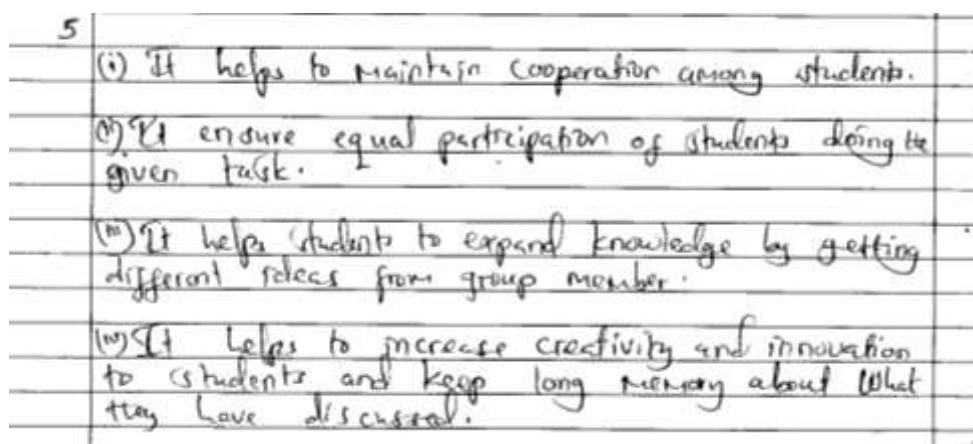 5
(i) It helps to maintain cooperation among students.
(ii) It ensure equal participation of students doing the
given task.
(iii) It helps students to expand knowledge by getting
different ideas from group member.
(iv) It helps to increase creativity and innovation
to students and keep long memory about what
they have discussed.